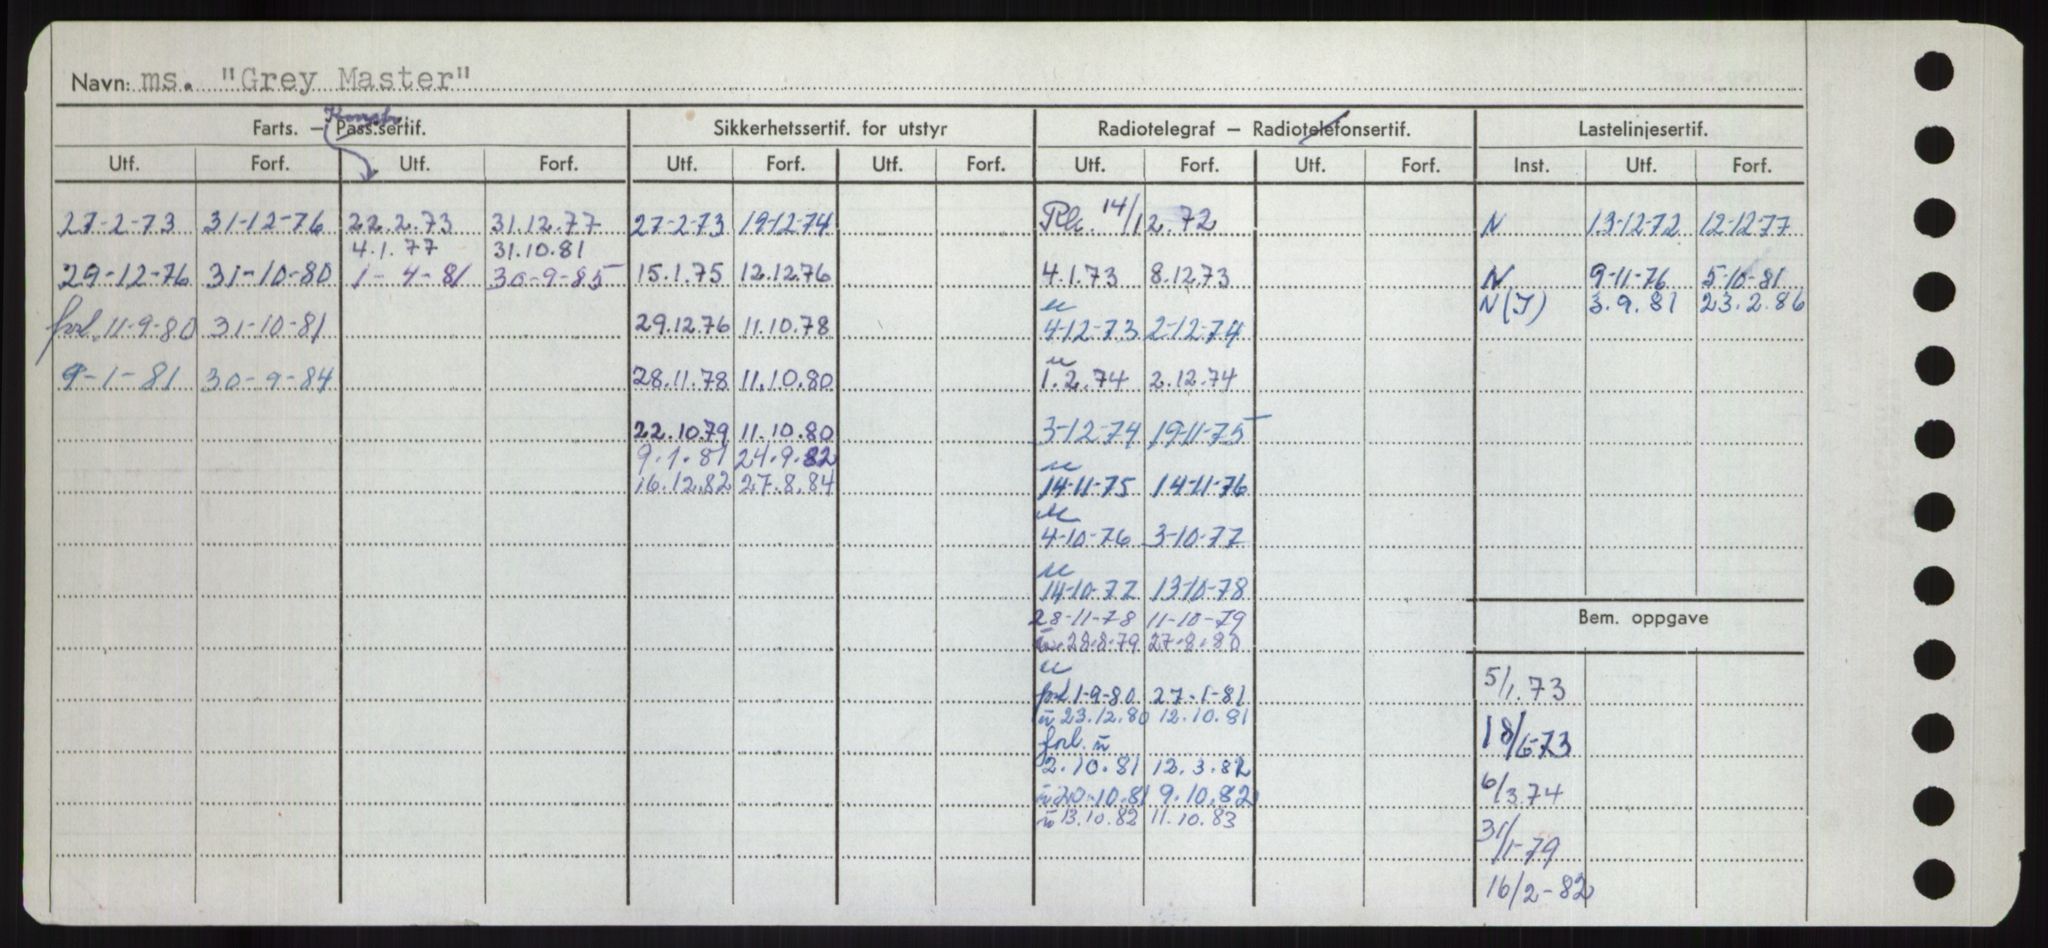 Navn: ms. "Grey Master"
Konstr.
Farts. – Pass.sertif. Sikkerhetssertif. for utstyr Radiotelegraf – Radiotelefonsertif. Lastelinjesertif.
Utf. Forf. Utf. Forf. Utf. Forf. Utf. Forf. Utf. Forf. Utf. Forf. Inst. Utf. Forf.
27-2-73 31-12-76 22.2.73 31.12.77 27-2-73 19-12-74 14/12.72 N 13-12-72 12-12-77
4.1.77 31.10.81
29-12-76 31-10-80 1-4-81 30-9-85 15.1.75 12.12.76 4.1.73 8.12.73 N 9-11-76 5-10-81
u N(I) 3.9.81 23.2.86
forl. 11-9-80 31-10-81 29.12.76 11.10.78 4-12-73 2-12-74
u
9-1-81 30-9-84 28.11.78 11.10.80 1.2.74 2.12.74
22.10.79 11.10.80 3-12-74 19-11-75
9.1.81 24.9.82 u
16.12.82 27.8.84 14-11-75 14-11-76
u
4-10-76 3-10-77
u
14-10-77 13-10-78
28-11-78 11-10-79
u. 28.8.79 27.8.80
Bem. oppgave
u
forl. 1-9-80 27-1-81 5/1.73
u 23.12.80 12.10.81
forl. u 18/6-73
2.10.81 12.3.82
u 20.10.81 9.10.82 6/3.74
u 13.10.82 11.10.83
31/1-79
16/2-82